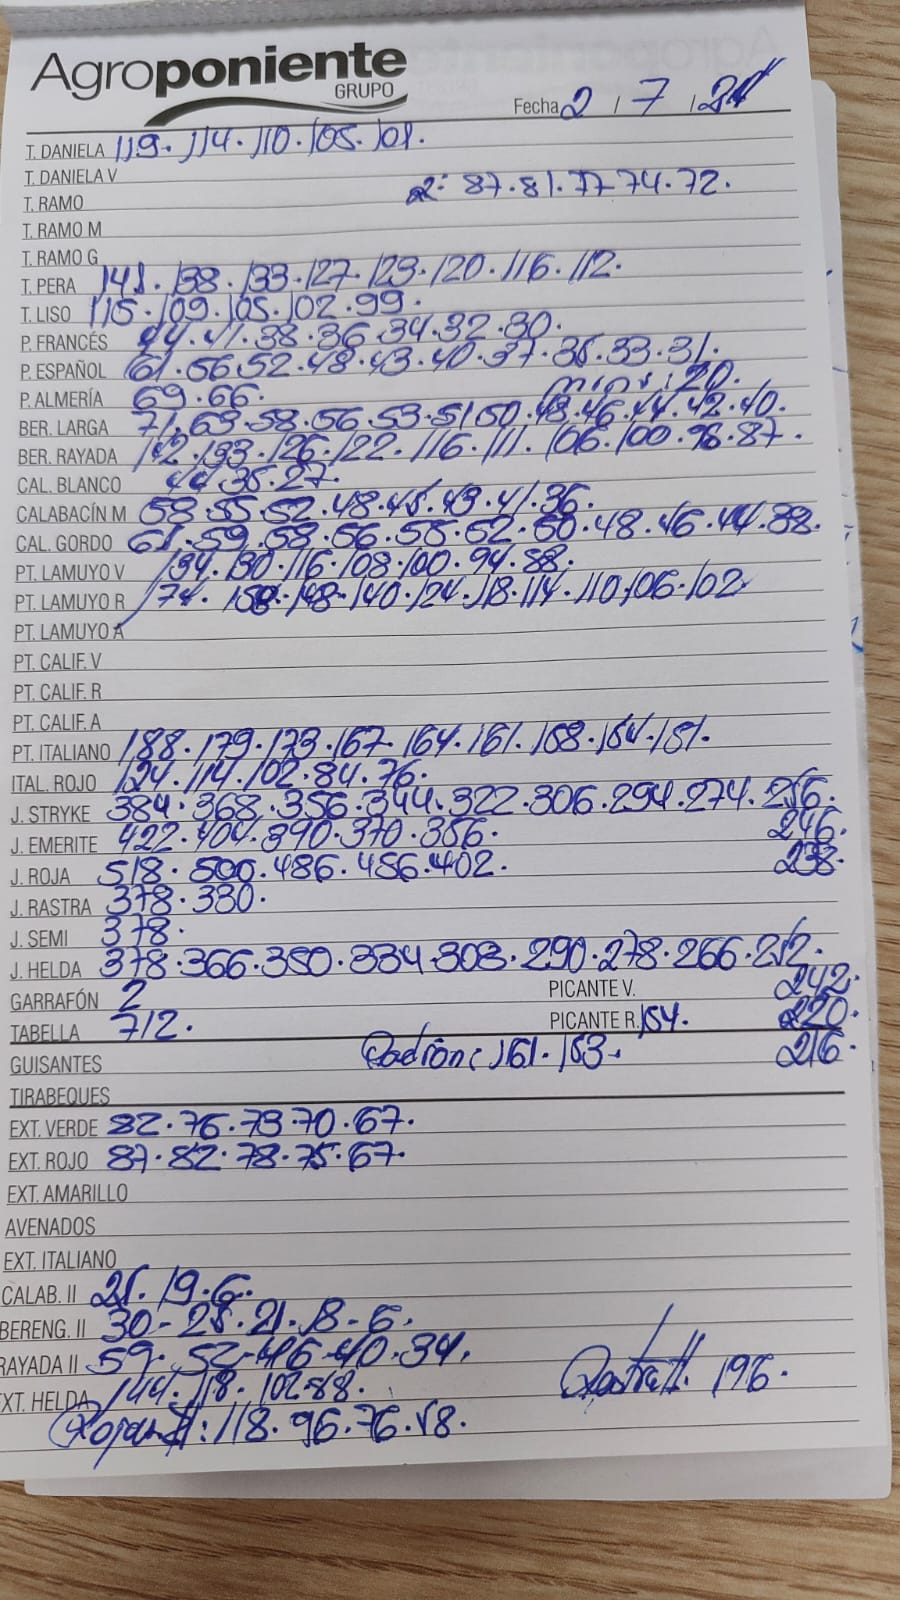 Agroponiente
GRUPO
Fecha 2 / 7 / 24
T. DANIELA 119. 114. 110. 105. 101.
T. DANIELA V
T. RAMO 2ª: 87.81.77.74.72.
T. RAMO M
T. RAMO G
T. PERA 141. 138. 133. 127. 123. 120. 116. 112.
T. LISO 115. 109. 105. 102. 99.
P. FRANCÉS 44. 41. 38. 36. 34. 32. 30.
P. ESPAÑOL 61. 56. 52. 48. 43. 40. 37. 35. 33. 31.
P. ALMERÍA 69. 66. mini: 20.
BER. LARGA 71. 63. 58. 56. 53. 51. 50. 48. 46. 44. 42. 40.
BER. RAYADA 142. 133. 126. 122. 116. 111. 106. 100. 96. 87.
CAL. BLANCO 44. 35. 27.
CALABACÍN M 58. 55. 52. 48. 45. 43. 41. 36.
CAL. GORDO 61. 59. 58. 56. 55. 52. 50. 48. 46. 44. 38.
PT. LAMUYO V 134. 130. 116. 108. 100. 94. 88.
PT. LAMUYO R 174. 158. 148. 140. 124. 118. 114. 110. 106. 102
PT. LAMUYO A
PT. CALIF. V
PT. CALIF. R
PT. CALIF. A
PT. ITALIANO 188. 179. 173. 167. 164. 161. 158. 154. 151.
ITAL. ROJO 124. 114. 102. 84. 76.
J. STRYKE 384. 368. 356. 344. 322. 306. 294. 274. 256.
J. EMERITE 422. 404. 390. 370. 356. 246.
J. ROJA 518. 500. 486. 456. 402. 238.
J. RASTRA 378. 330.
J. SEMI 378.
J. HELDA 378. 366. 350. 334. 308. 290. 278. 266. 252.
GARRAFÓN 2 PICANTE V. 242.
TABELLA 712. PICANTE R. 154. 220.
GUISANTES Padrón: 161. 153. 216.
TIRABEQUES
EXT. VERDE 82. 76. 73. 70. 67.
EXT. ROJO 87. 82. 78. 75. 67.
EXT. AMARILLO
AVENADOS
EXT. ITALIANO
CALAB. II 25. 19. 6.
BERENG. II 30 - 25. 21. 18 - 6.
RAYADA II 59. 52. 46. 40. 34.
EXT. HELDA 144. 118. 102. 88. Rastra II. 196.
Roja II: 118. 96. 76. 58.